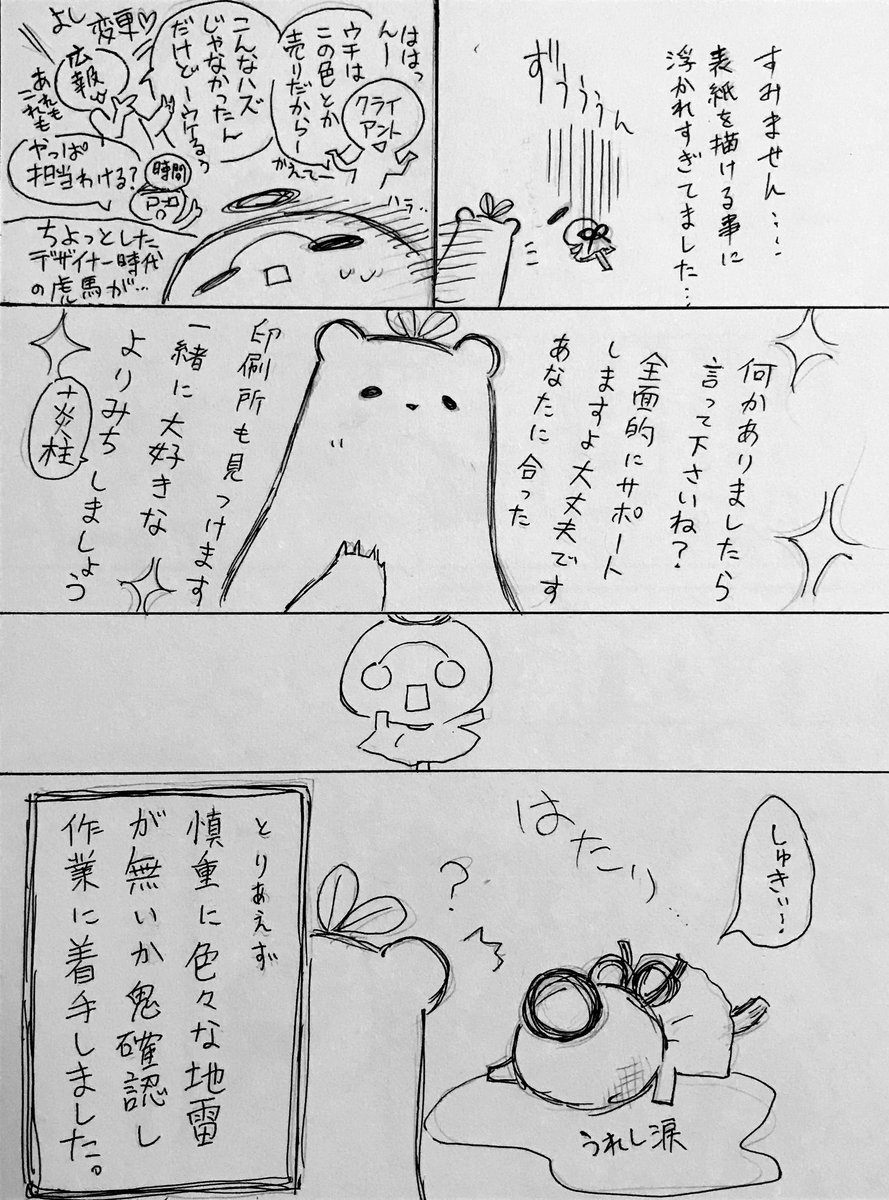 すみません…
表紙を描ける事に
浮かれすぎてました…
ずぅぅぅん
ははっ
んー
ウチは
この色とか
売りだからー
かえてー
クライ
アント
こんなハズ
じゃなかったん
だけどーウケるっ
よし
変更♡
広報
あれも
これも
やっぱ
担当わける?
時間
ちょっとした
デザイナー時代
の虎馬が…
何かありましたら
言って下さいね?
全面的にサポート
しますよ大丈夫です
あなたに合った
印刷所も見つけます
一緒に大好きな
よりみちしましょう
+炎柱
しゅきぃ…
はたり…
?
うれし涙
とりあえず
慎重に色々な地雷
が無いか鬼確認し
作業に着手しました。